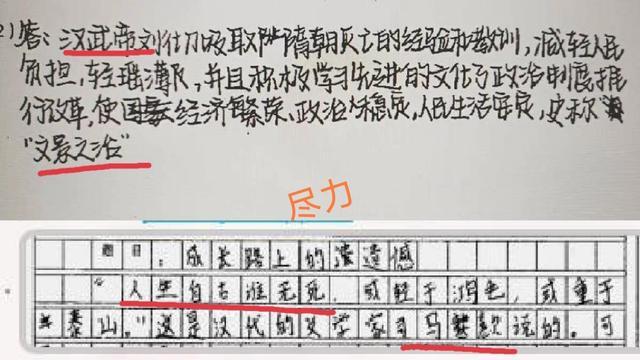 2) 答：汉武帝刘彻吸取隋朝灭亡的经验和教训，减轻人民
负担，轻瑶薄，并且积极学习先进的文化与政治制度，推
行改革，使国经济繁荣、政治稳定，人民生活安定，史称
“文景之治”
尽力
题目：成长路上的遗憾
“人生自古谁无死，或轻于鸿毛，或重于
泰山。”这是汉代的文学家司马说的。可